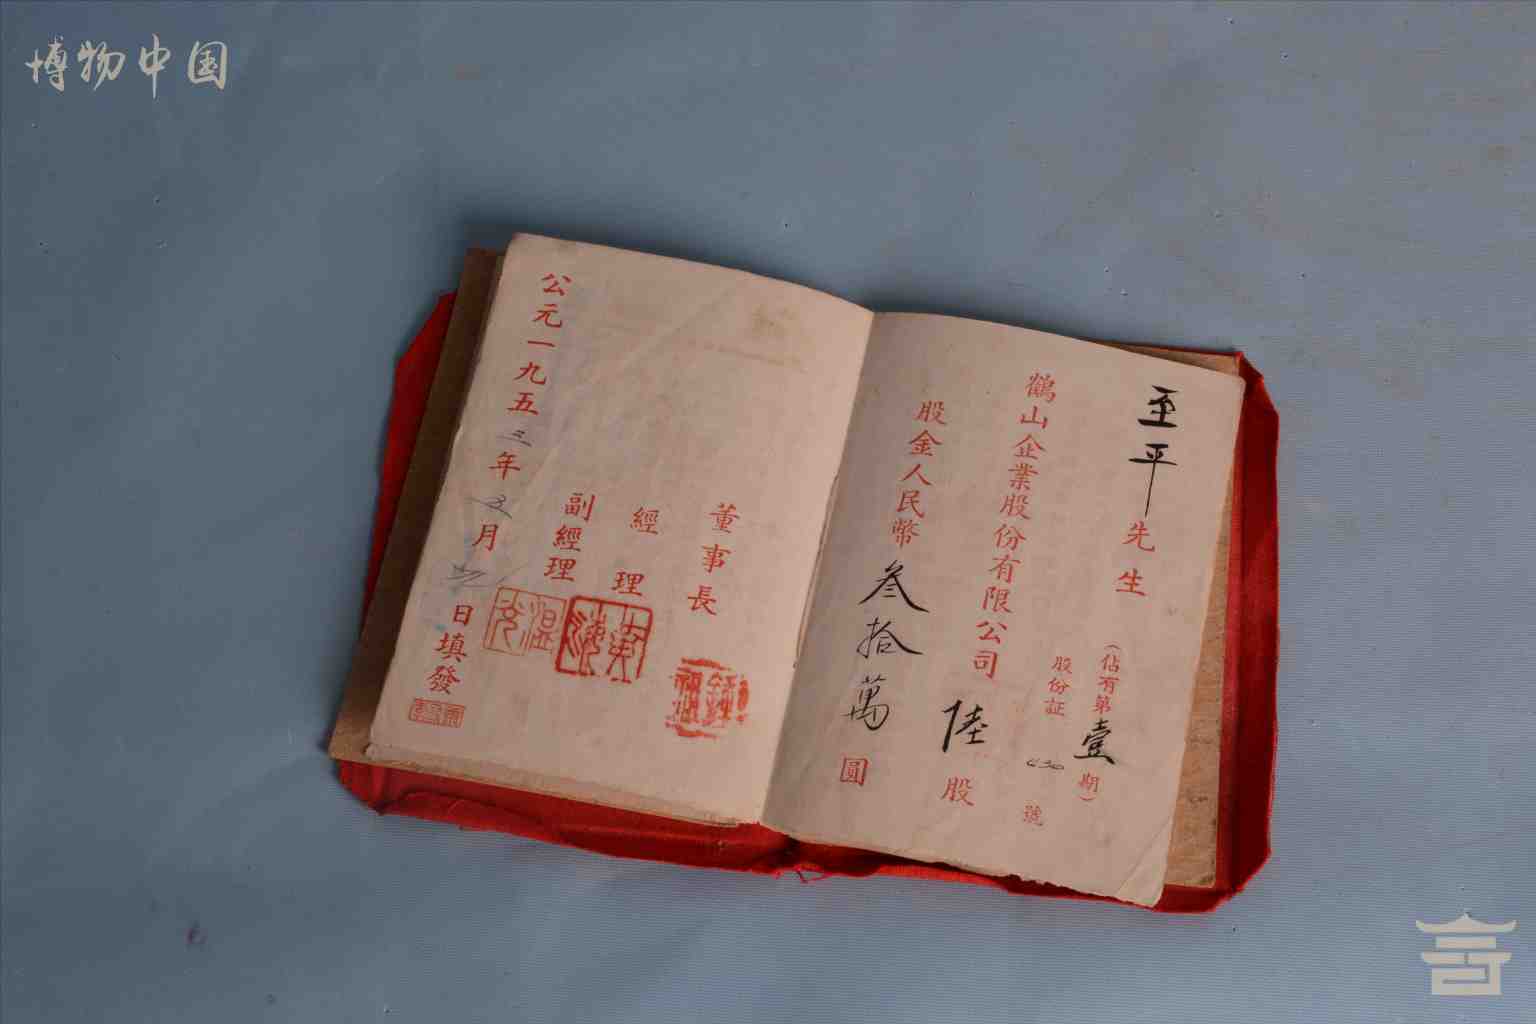 博物中国
至平先生
（佔有第壹期）
股份証630號
鶴山企業股份有限公司陸股
股金人民幣叁拾萬圓
董事長
經理
副經理
公元一九五三年五月日填發